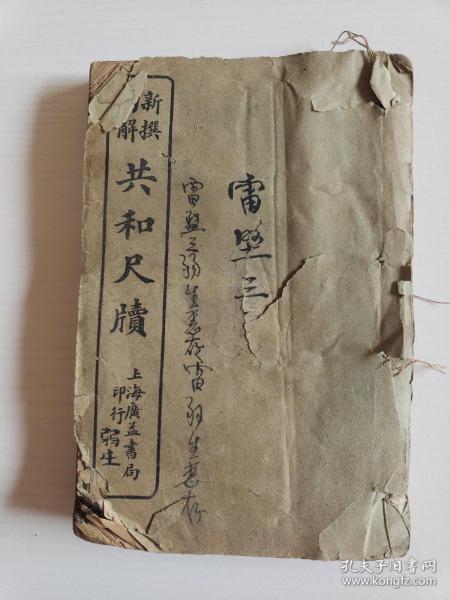 新撰
解
共和尺牘
上海廣益書局
印行
弱生
雷堅三
雷堅三弱生惠存雷弱生惠存
孔夫子旧书网
www.kongfz.com